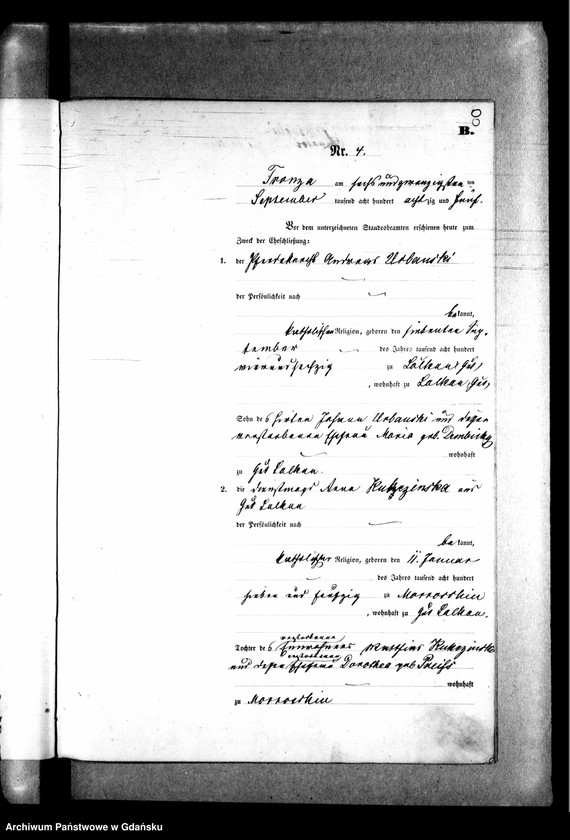 B.
Nr. 4.
am sechsundzwanzigsten ten
September tausend acht hundert achtzig und fünf.
Vor dem unterzeichneten Standesbeamten erschienen heute zum
Zweck der Eheschließung:
1. der Pferdeknecht Andreas Urbanski
der Persönlichkeit nach
bekannt,
katholischer Religion, geboren den siebenten Sep-
tember des Jahres tausend acht hundert
vierundsechzig zu Lalkau (Gut)
, wohnhaft zu Lalkau (Gut)
Sohn des Hirten Johann Urbanski und dessen
verstorbenen Ehefrau Maria geb.
wohnhaft
zu Gut Lalkau.
2. die Dienstmagd Anna aus
Gut Lalkau
der Persönlichkeit nach
bekannt,
katholischer Religion, geboren den 11. Januar
des Jahres tausend acht hundert
sieben und fünfzig zu Morroschin
, wohnhaft zu Gut Lalkau.
verstorbenen
Tochter des Einwohners
verstorbenen
und dessen Ehefrau Dorothea geb.
wohnhaft
zu Morroschin
Archiwum Państwowe w Gdańsku